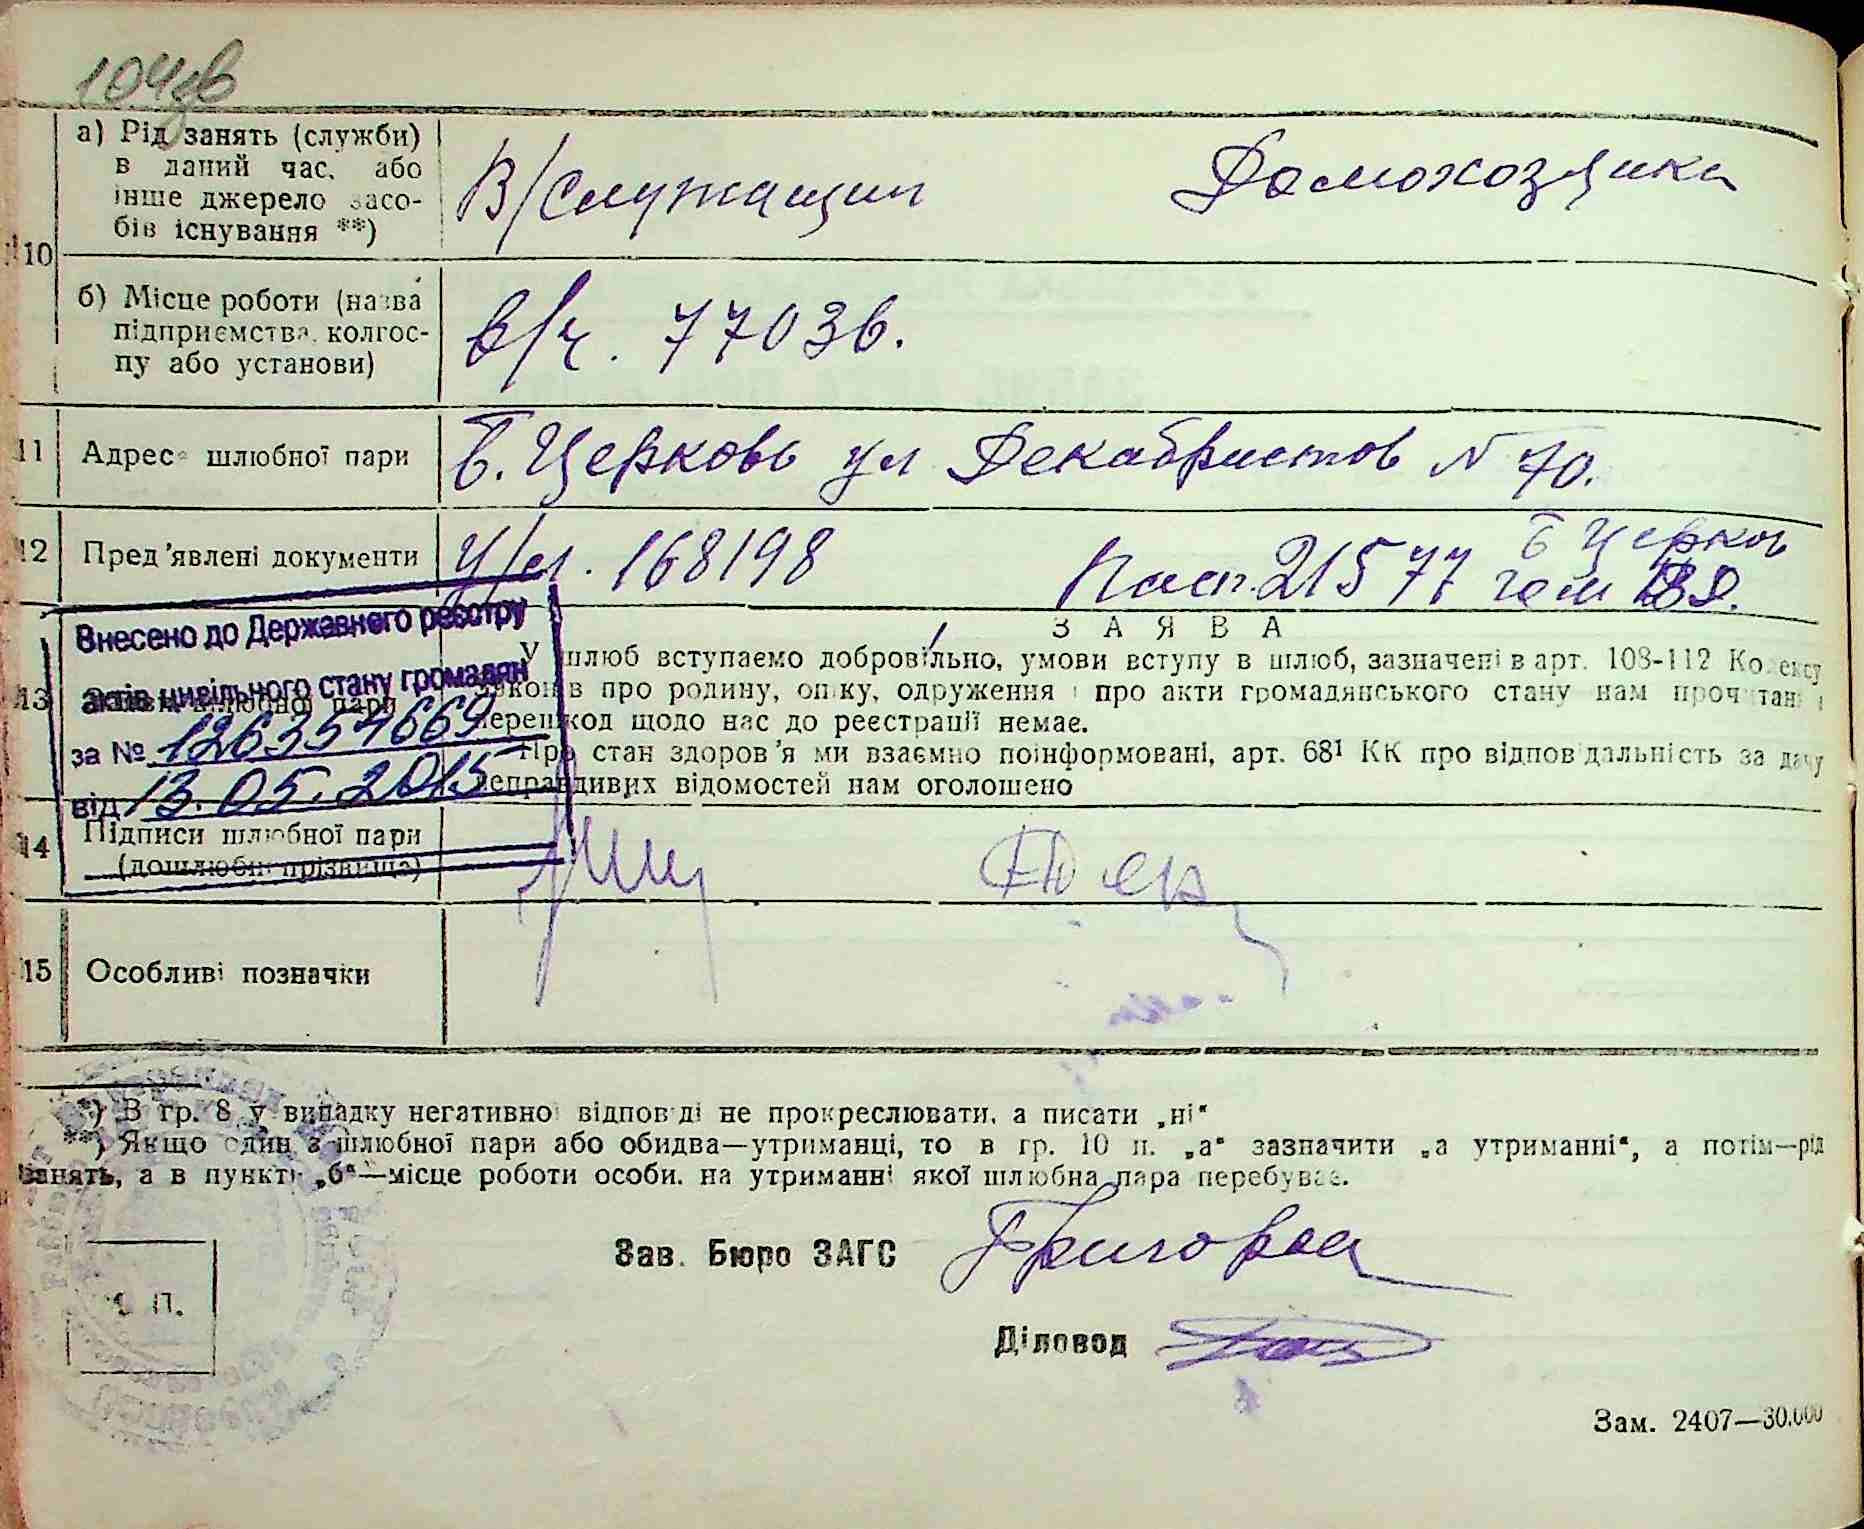 104зв
10
а) Рід занять (служби)
в даний час, або
інше джерело засо-
бів існування **)
В/служащий
Домохозяйка
б) Місце роботи (назва
підприємства, колгос-
пу або установи)
в/ч. 77036.
11
Адреса шлюбної пари
Б. Церковь ул Декабристов № 70.
12
Пред'явлені документи
У/л. 168198
Пасп. 21577
Б Церков
ЗАЯВА
13
У шлюб вступаємо добровільно, умови вступу в шлюб, зазначені в арт. 108-112 Кодексу
законів про родину, опіку, одруження і про акти громадянського стану нам прочитані і
перешкод щодо нас до реєстрації немає.
Про стан здоров'я ми взаємно поінформовані, арт. 68¹ КК про відповідальність за дачу
неправдивих відомостей нам оголошено
Внесено до Державного реєстру
актів цивільного стану громадян
за № 1263574669
від 13.05.2015
14
Підписи шлюбної пари
(дошлюбні прізвища)
15
Особливі позначки
*) В гр. 8 у випадку негативної відповіді не прокреслювати, а писати „ні“
**) Якщо один з шлюбної пари або обидва—утриманці, то в гр. 10 п. „а“ зазначити „а утриманні“, а потім—рід
занять, а в пункті „б“—місце роботи особи, на утриманні якої шлюбна пара перебуває.
Зав. Бюро ЗАГС
М. П.
Діловод
Зам. 2407—30.000